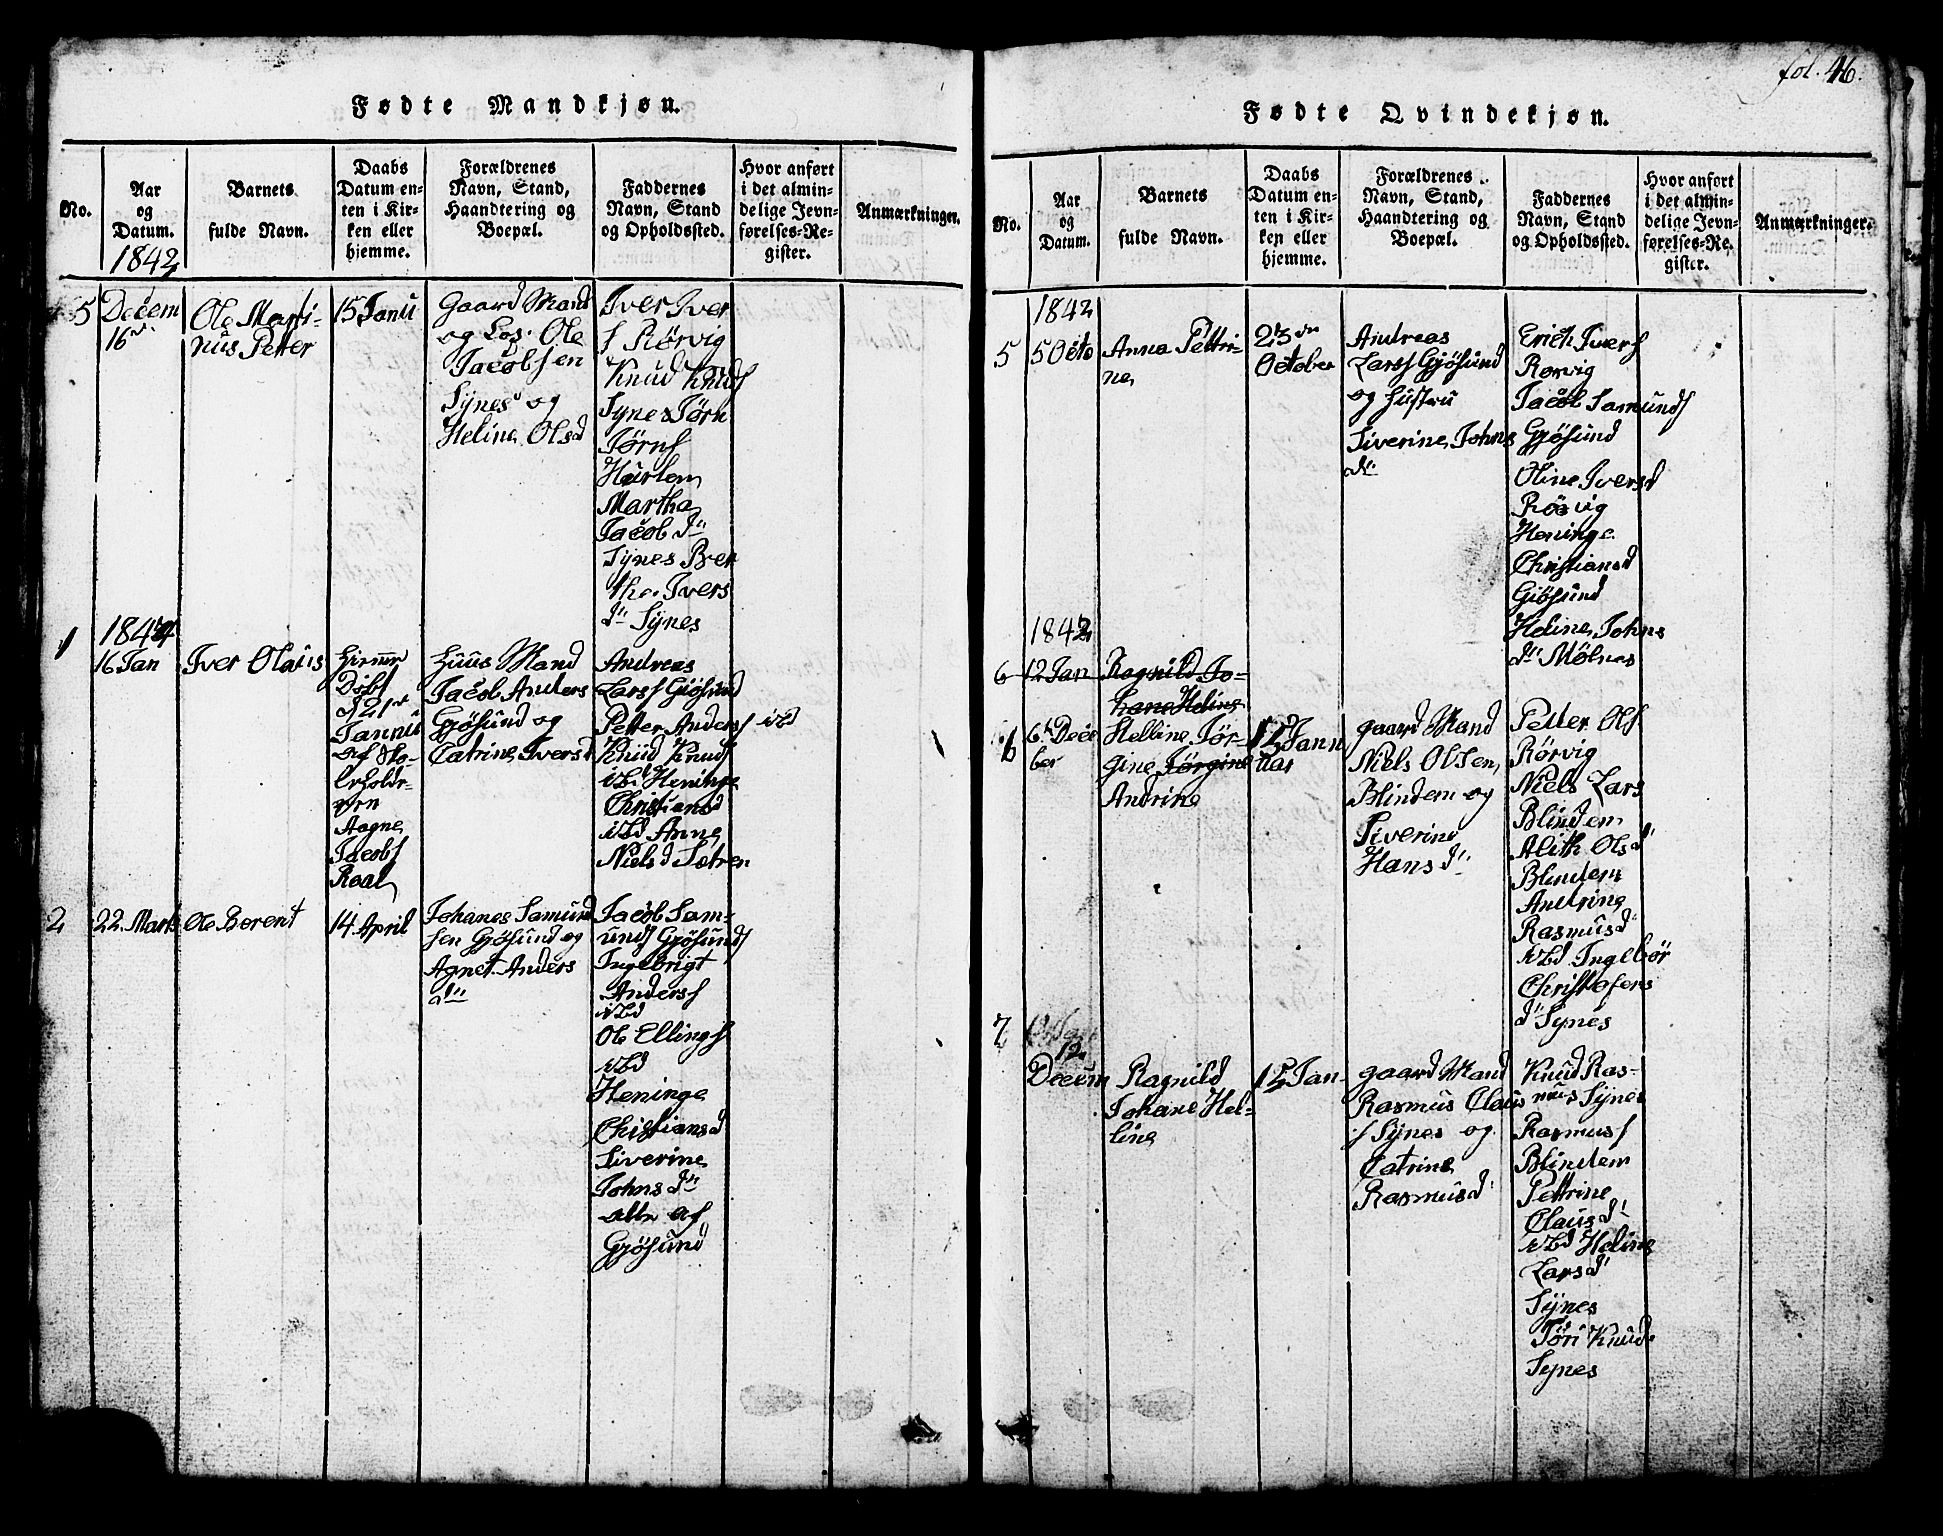 fol. 46.
Fødte Mandkjøn.
No.
Aar
og
Datum.
1842
Barnets
fulde Navn.
Daabs
Datum en-
ten i Kir-
ken eller
hjemme.
Forældrenes
Navn, Stand,
Haandtering og
Boepæl.
Faddernes
Navn, Stand
og Opholdssted.
Hvor anført
i det almin-
delige Jevn-
førelses-Re-
gister.
Anmærkninger.
5
Decem
16
Ole Marti-
nus Petter
15 Janu
Gaard Mand
og Los. Ole
Jacobsen
Synes og
Heline Olsd
Iver Iver
f Rörvig
Knud Knuds
Synes Jörn
Jörns
Hurlem
Martha
Jacob dn
Synes Ber
the Ivers
dn Synes
1
16 Jan
Iver Olaus
Hiemm
Döbt
d 21
Januu
af Sko-
leholde-
ren
Aagne
Jacobs
Roal
Huus Mand
Jacob Anders
Gjösund og
Catrine Iversd
Andreas
Larss Giösund
Petter Anderss ibd
Knud Knuds
ibd Heninge
Christiansd
ibd Anne
Nielsd Sætren
2
22 Marts
Ole Berent
14 April
Johanes Samund
sen Gjösund og
Agnet Anders
dn
Jacob Sam-
unds Gjösunds
Ingebrigt
Anderss
ibd
Ole Ellings
ibd
Heninge
Christiansd
Siverine
Johns dn
alle af
Gjösund
Fødte Qvindekjøn.
No.
Aar
og
Datum.
Barnets
fulde Navn.
Daabs
Datum en-
ten i Kir-
ken eller
hjemme.
Forældrenes
Navn, Stand,
Haandtering og
Boepæl.
Faddernes
Navn, Stand
og Opholdssted.
Hvor anført
i det almin-
delige Jevn-
førelses-Re-
gister.
Anmærkninger.
1842
5
5 Octo
Anna Pettri-
ne
23
October
Andreas
Larss Gjösund
og Hustru
Siverine Johns
dn
Erich Ivers
Rørvig
Jacob Samunds
Gjösund
Oline Iversd
Rösvig
Heninge
Christiansd
Giösund
Heline Johns
dn Mölnes
1842
6
12 Jan
Ragnild Jo-
hane Heline
6
6 Dece
ber
Helline Jör-
gine Jörgine
Andrine
15 Jann
uar
gaard Mand
Niels Olsen
Blindem og
Siverine
Hans dn
Petter Ols
Rörvig
Niels Lars
Blindem
Alith Olsd
Blindem
Andrine
Rasmusd
ibd Ingebör
Christofers
dn Synes
7
12
Decem
Ragnild
Johane Hel-
line
15 Jan
gaard Mand
Rasmus Claus
f Synes og
Catrine
Rasmusd
Knud Ras-
mus Synes
Rasmus f
Blindem
Pettrine
Claus d
ibd Heline
Larsd
Synes
Jöri Knud
Synes